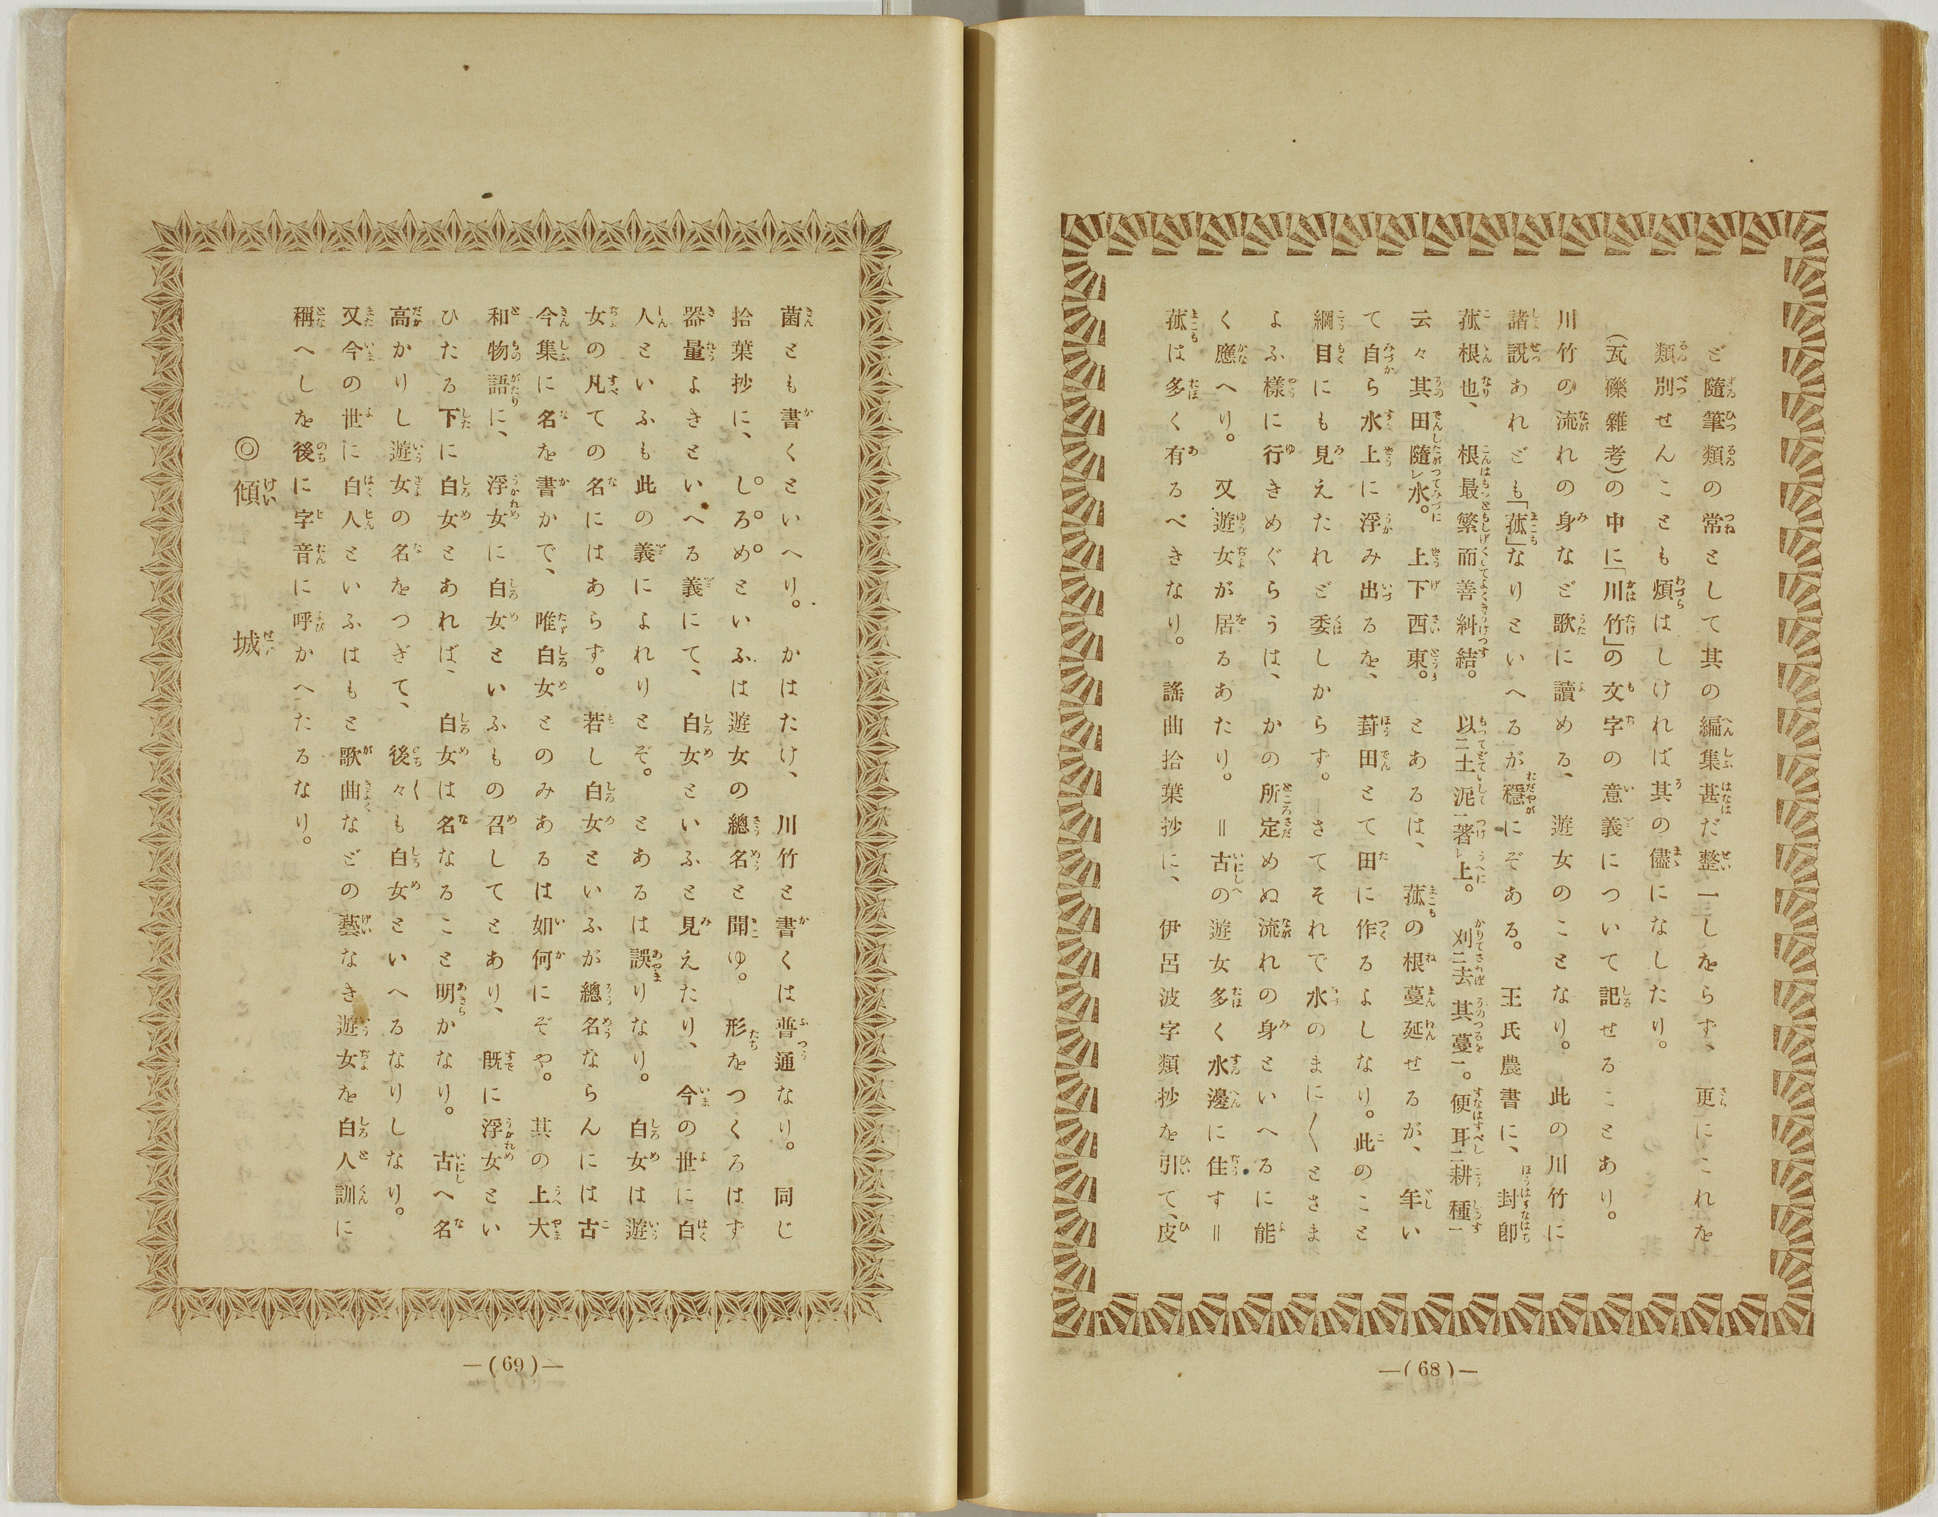 ど隨筆類の常として其の編集甚だ整一しをらず、更にこれを
類別せんことも煩はしければ其の儘になしたり。
(瓦礫雜考)の中に「川竹」の文字の意義について記せることあり。
川竹の流れの身など歌に讀める、遊女のことなり。此の川竹に
諸説あれども「菰」なりといへるが穩にぞある。王氏農書に、封卽
菰根也、根最繁而善糾結。以二土泥一著レ上。刈二去其蔓一。便耳二耕種一
云々其田隨レ水。上下西東。とあるは、菰の根蔓延せるが、年い
て自ら水上に浮み出るを、葑田とて田に作るよしなり。此のこと
綱目にも見えたれど委しからず。さてそれで水のまに〱とさま
よふ樣に行きめぐらうは、かの所定めぬ流れの身といへるに能
く應へり。又遊女が居るあたり。＝古の遊女多く水邊に住す＝
菰は多く有るべきなり。謠曲拾葉抄に、伊呂波字類抄を引いて、皮
―(68)―
菌とも書くといへり。かはたけ、川竹と書くは普通なり。同じ
拾葉抄に、しろめといふは遊女の總名と聞ゆ。形をつくろはず
器量よきといへる義にて、白女といふと見えたり、今の世に白
人といふも此の義によれりとぞ。とあるは誤りなり。白女は遊
女の凡ての名にはあらず。若し白女といふが總名ならんには古
今集に名を書かで、唯白女とのみあるは如何にぞや。其の上大
和物語に、浮女に白女といふもの召してとあり、既に浮女とい
ひたる下に白女とあれば、白女は名なること明かなり。古へ名
高かりし遊女の名をつぎて、後々も白女といへるなりしなり。
又今の世に白人といふはもと歌曲などの藝なき遊女を白人訓に
稱へしを後に字音に呼かへたるなり。
◎傾城
―(69)―